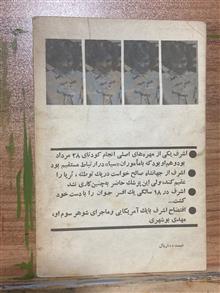 اشرف یکی از مهره‌های اصلی انجام کودتای ۲۸ مرداد
بود و هم او بود که با ماموران «سیا» در ارتباط مستقیم بود
اشرف از جهانشاه صالح خواست در یک توطئه، ثریا را
عقیم کند، ولی این پزشک حاضر به چنین کاری نشد
اشرف در ۱۸ سالگی یک افسر جوان را با دست خود
کشت...
افتضاح اشرف با یک آمریکایی و ماجرای شوهر سوم او،
مهدی بوشهری
ریال